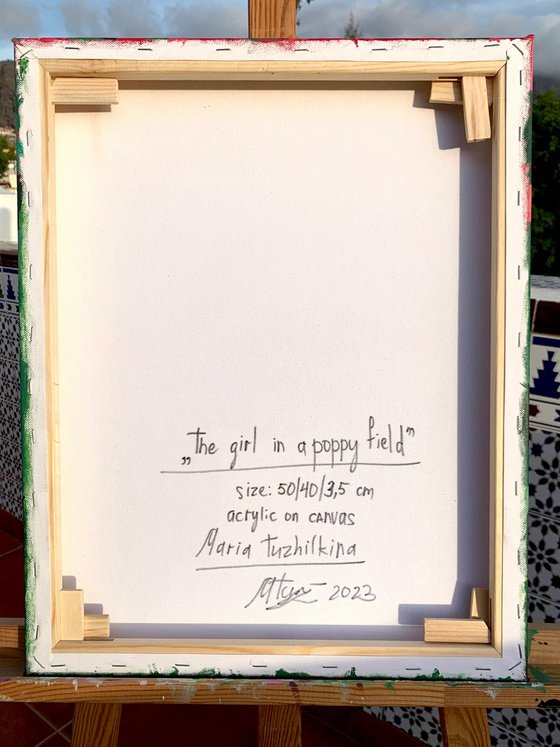 „The girl in a poppy field”
size: 50/40/3,5 cm
acrylic on canvas
Maria Tuzhilkina
2023